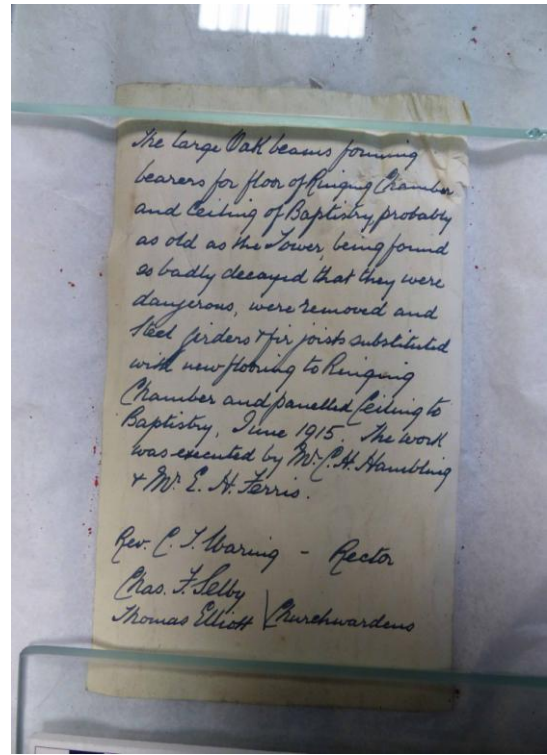 The large Oak beams forming
bearers for floor of Ringing Chamber
and Ceiling of Baptistry, probably
as old as the Tower, being found
so badly decayed that they were
dangerous, were removed and
steel girders & fir joists substituted
with new flooring to Ringing
Chamber and panelled Ceiling to
Baptistry, June 1915. The work
was executed by Mr. C. H. Hambling
& Mr. E. H. Ferris.
Rev. C. T. Waring - Rector
Chas. F. Selby
Thomas Elliott Churchwardens